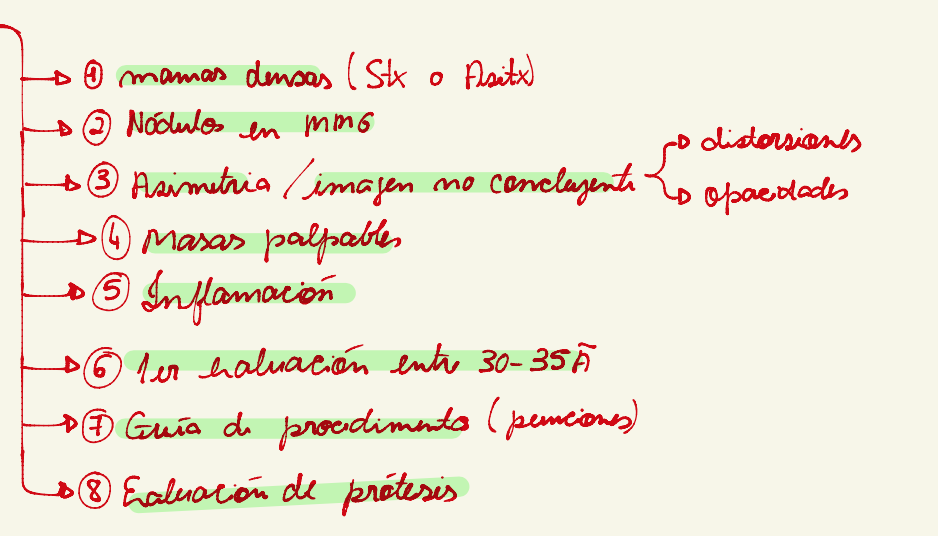 1 mamas densas (Stx o Asitx)
2 Nódulos en MMG
3 Asimetria / imagen no concluyente
distorsiones
opacidades
4 Masas palpables
5 Inflamación
6 1er evaluación entre 30-35 Ã
7 Guía de procedimento (punciones)
8 Evaluación de prótesis